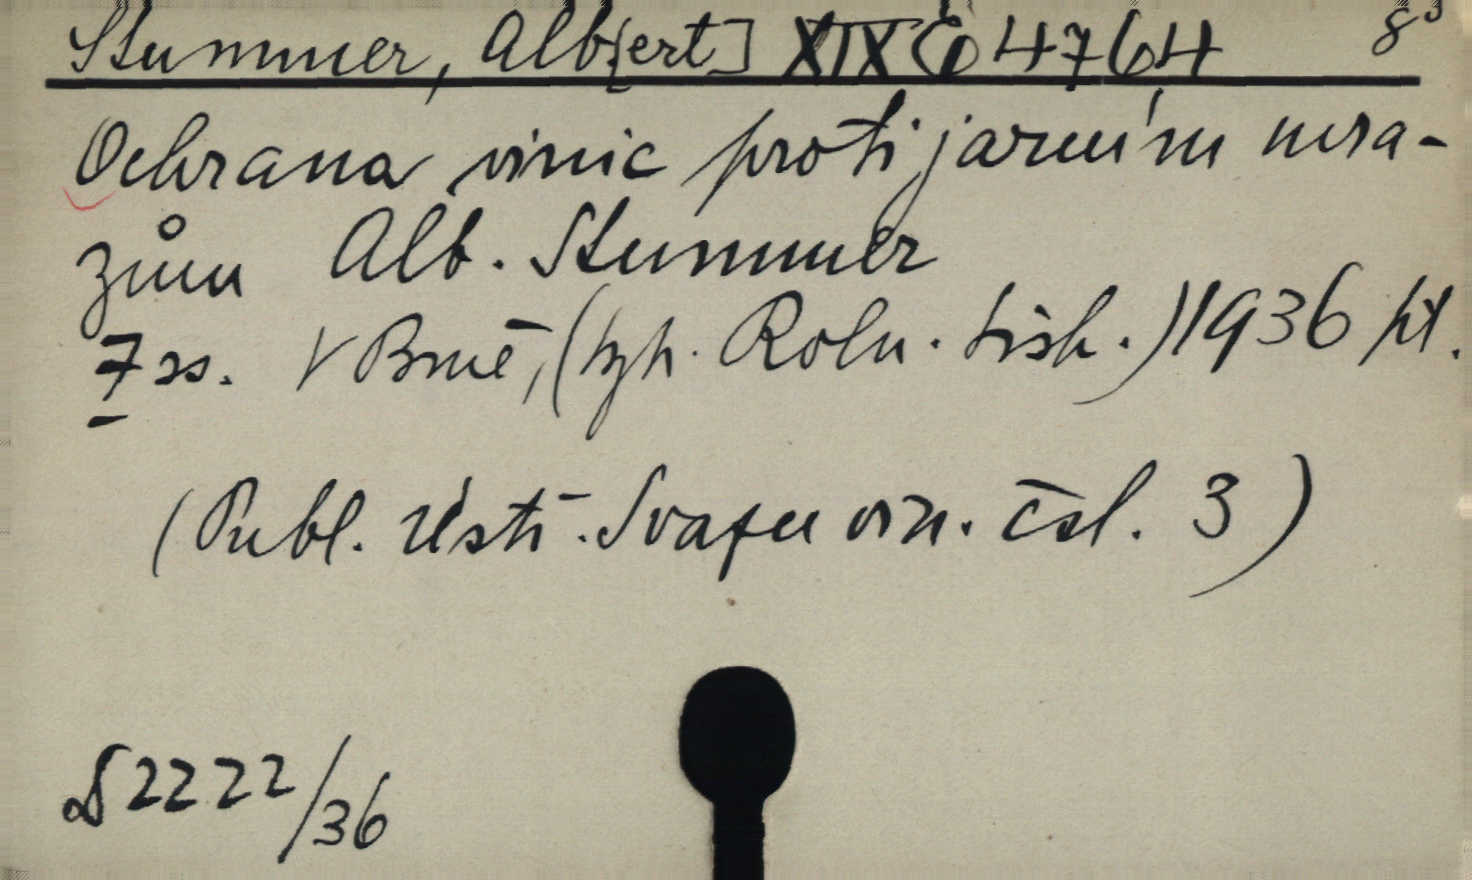 Stummer, Alb[ert] XIX E 4764 8°
Ochrana vinic proti jarním mra-
zům Alb. Stummer
7 ss. V Brně, (typ. Roln. tisk.) 1936 pt.
(Publ. Ústř. Svazu vin. čsl. 3)
2222/36